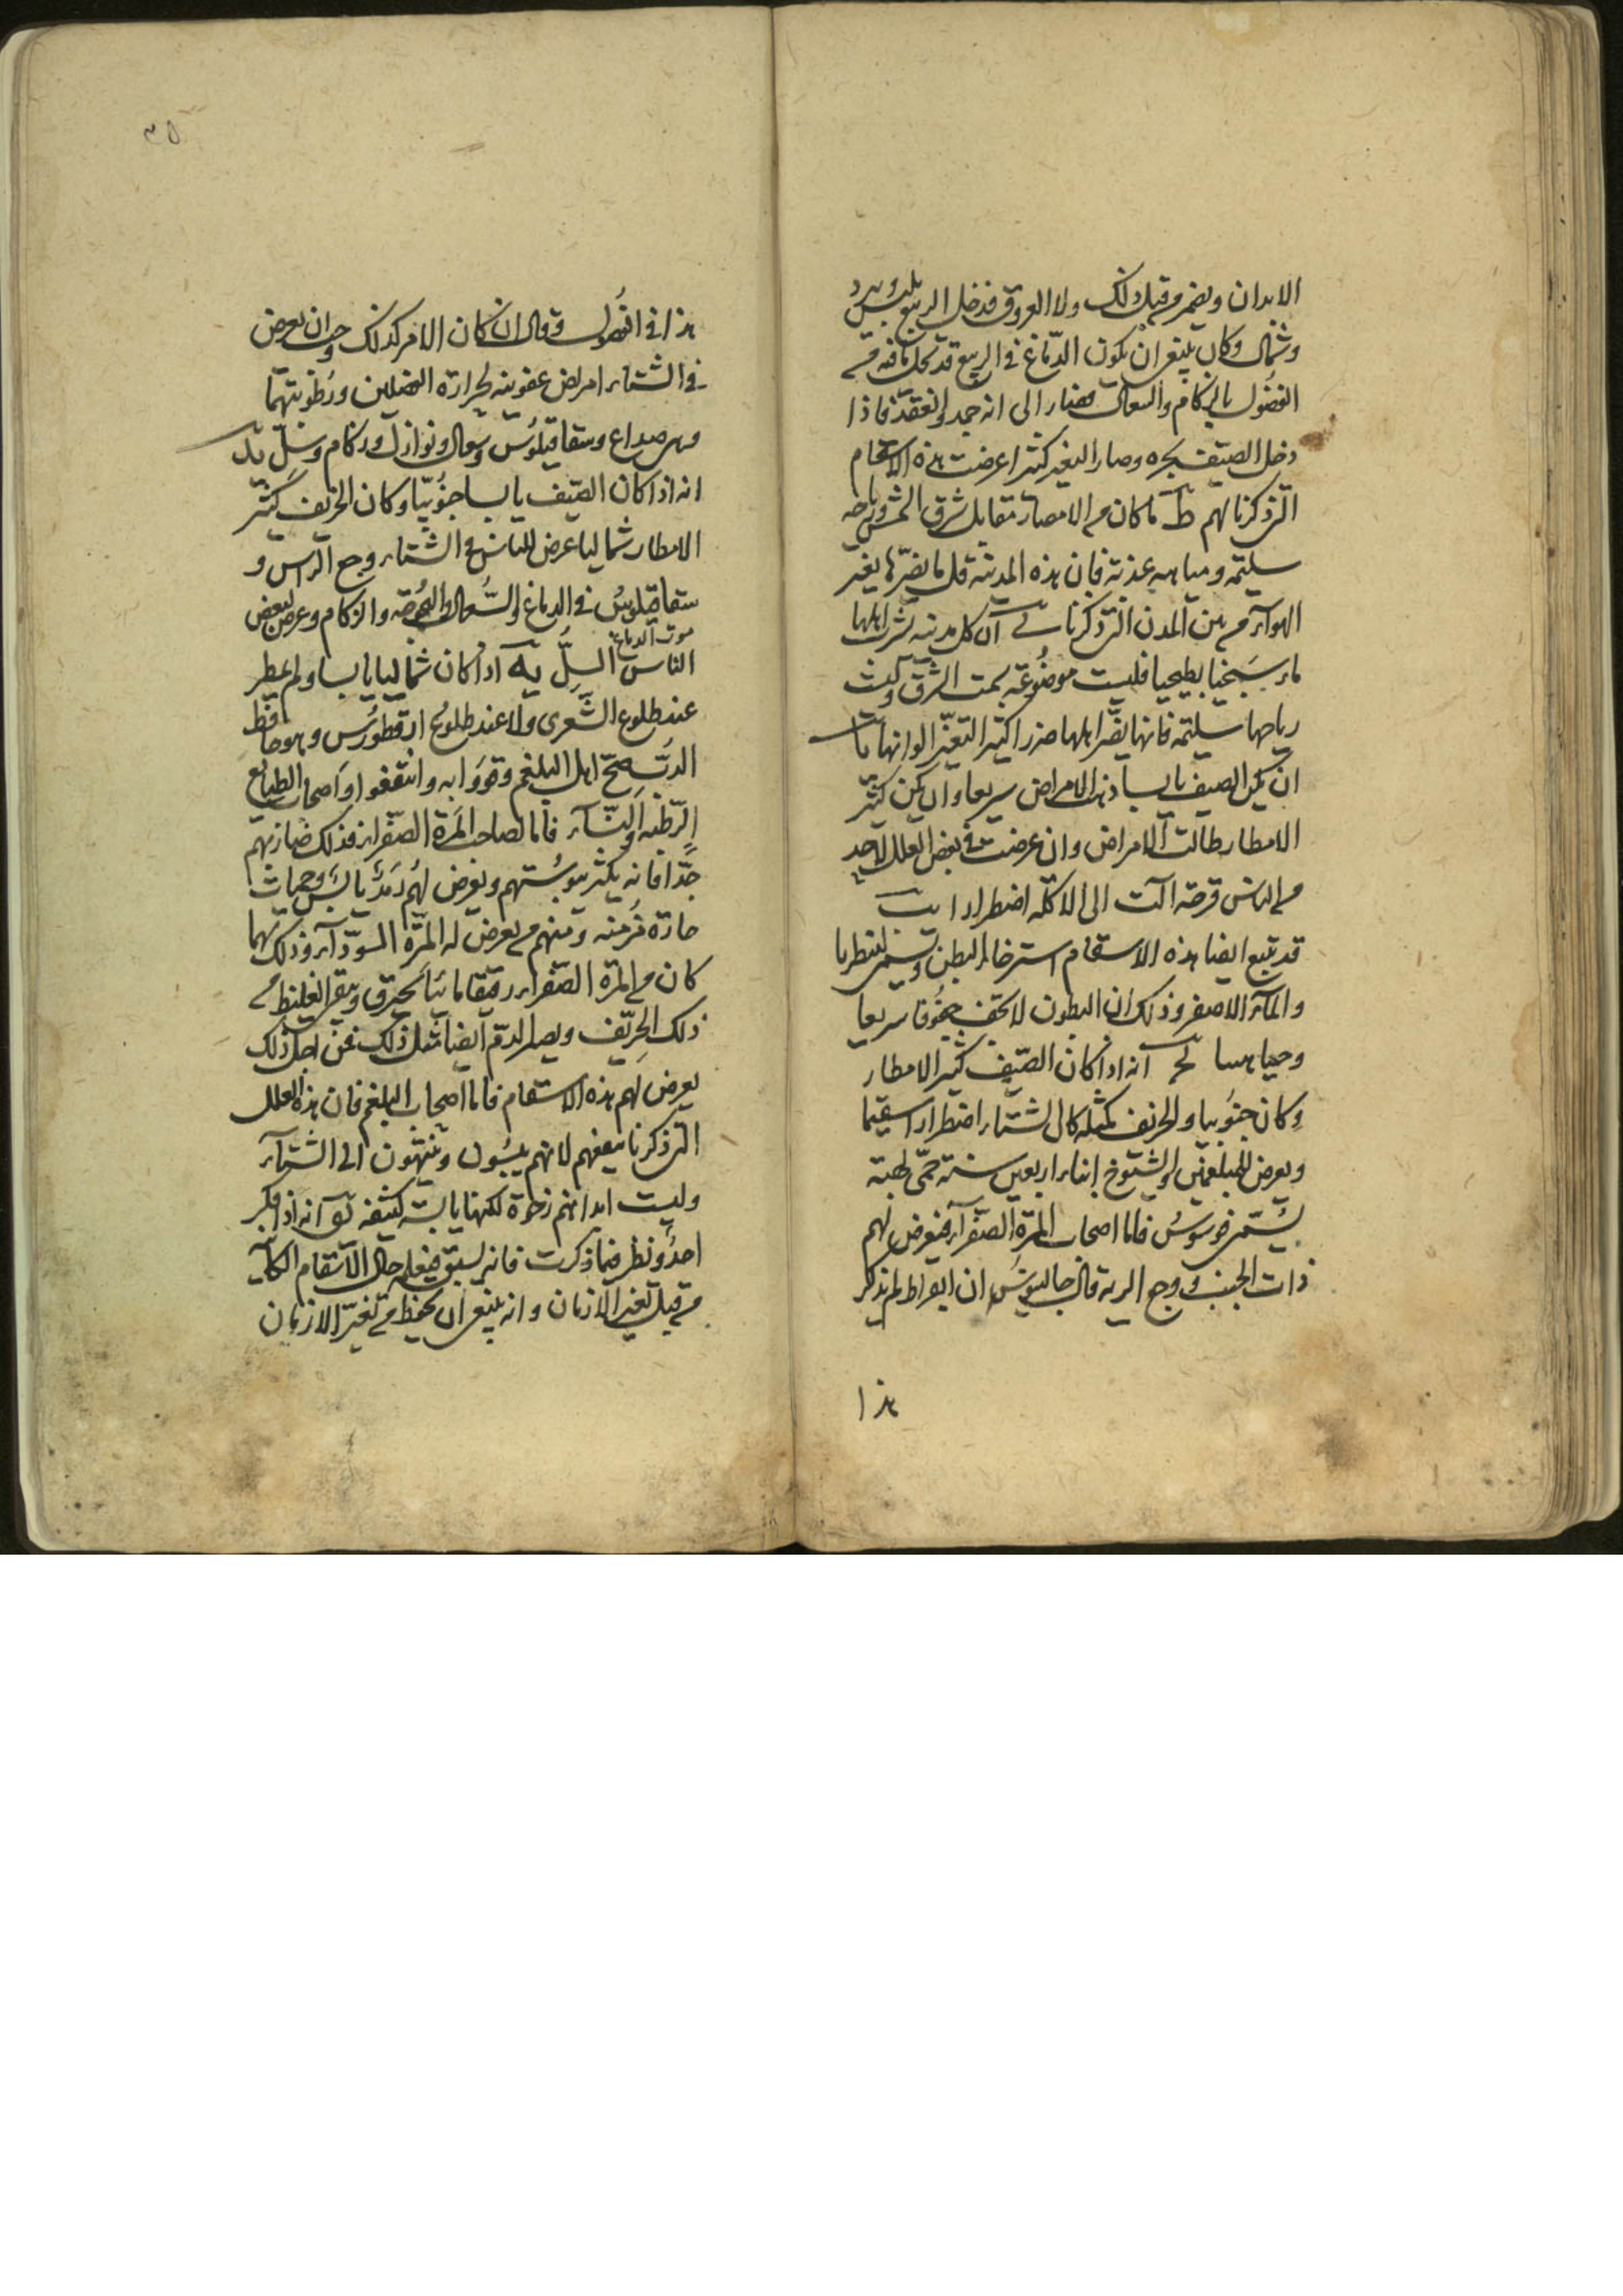 الابدان ويضمر من قبل ذلك ولا العروق فدخل الربيع بيبس وبرد
وشمال وكان ينبغى ان يكون الدماغ فى الربيع قد تحلل ما فيه من
الفضول بالزكام والسعال فصار الى انه جمد وانعقد فاذا
دخل الصيف بحره وصار التغير كثيرا عرضت هذه الاسقام
التى ذكرنا لهم ط ما كان من الامصار مقابل شرق الشمس ورياحه
سليمة ومياهه عذبة فان هذه المدينة قل ما يضرها تغير
الهواء من المدن التى ذكرنا ى ان كل مدينة يشرب اهلها
ماء سخنا بطيحيا وليست موضوعة بسمت الشرق وليست
رياحها سليمة فانها يضر اهلها ضررا كثيرا لتغير الوانها يا
ان يكن الصيف يابسا ذهب الامراض سريعا وان يكن كثير
الامطار طالت الامراض وان عرضت فى بعض العلل لاحد
من الناس قرحة الت الى الاكلة اضطرارا يب
قد تتبع ايضا هذه الاسقام استرخاء البطن وتسمى لنطريا
والماء الاصفر وذلك ان البطون لا تجف جفوفا سريعا
انه اذا كان الصيف كثير الامطار
وكان جنوبيا والخريف كمثله كان الشتاء اضطرارا سقيما
ويعرض للمبلغمين والشيوخ ابناء اربعين سنة حمى لهبة
يسمى قوسوس فاما اصحاب المرة الصفراء فيعرض لهم
ذات الجنب ووجع الرية قال جالينوس ان ابقراط لم يذكر
هذا
٣٥
هذا فى الفصول وقال ان كان الامر كذلك وجب ان يعرض
فى الشتاء امراض عفونية لحرارة الفصلين ورطوبتهما
وهى صداع وسقاقيلوس وسعال ونوازل وزكام وسل يد
انه اذا كان الصيف يابسا جنوبيا وكان الخريف كثير
الامطار شماليا عرض للناس فى الشتاء وجع الراس و
سقاقيلوس فى الدماغ والسعال والبحوحة والزكام وعرض لبعض
موت الدماغ
الناس السل يه اذا كان شماليا يابسا ولم يمطر
عند طلوع الشعرى ولا عند طلوع ارقطورس وهو حافظ
الدب صح اهل البلغم وقووا به وانتفعوا واصحاب الطبائع
الرطبة والنساء فاما لصاحب المرة الصفراء فذلك ضار لهم
جدا فانه يكثر يبوستهم ويعرض لهم رمد يابس وحميات
حادة مزمنة ومنهم من يعرض له المرة السوداء وذلك مهما
كان من المرة الصفراء رقيقا مائيا يحترق ويبقى الغليظ من
ذلك الحريف ويصير الدم ايضا مثل ذلك فمن اجل ذلك
يعرض لهم هذه الاسقام فاما اصحاب البلغم فان هذه العلل
التى ذكرنا ينفعهم لانهم ييبسون وينتهون الى الشتاء
وليست ابدانهم رخوة لكنها يابسة كثيفة يو انه اذا فكر
احد ونظر فيما ذكرت فانه يسبق فيعلم حال الاسقام الكاينة
من قبل تغير الازمان وانه ينبغى ان يحتفظ من تغير الازمان